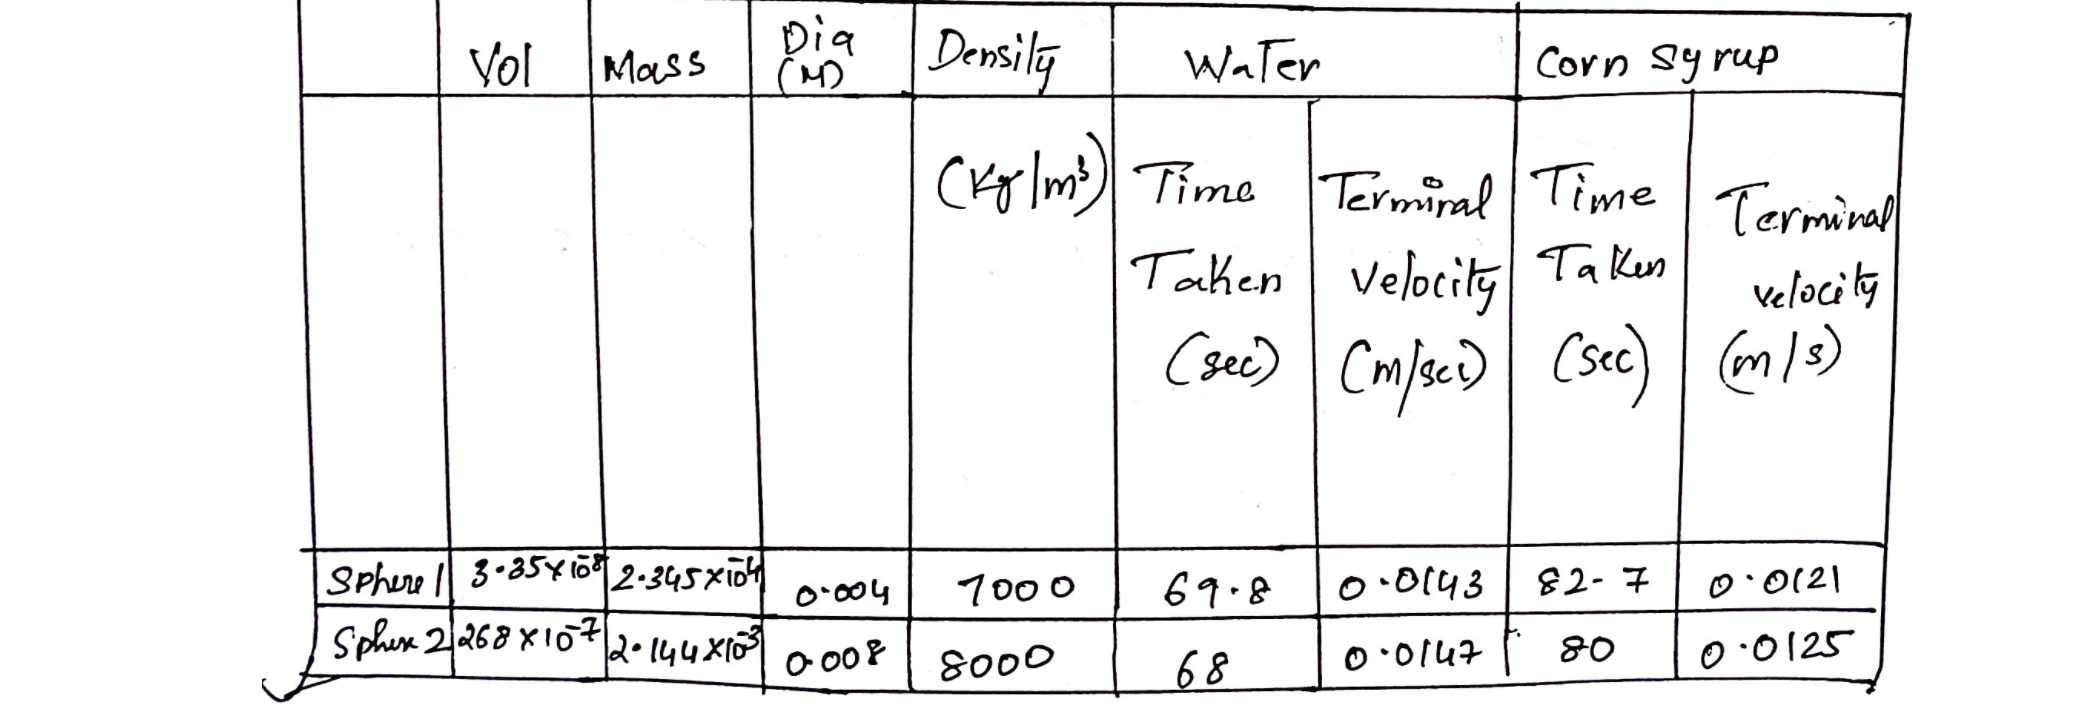 Vol Mass Dia (M) Density Water Corn Syrup
(Kg/m³) Time Taken (sec) Terminal Velocity (m/sec) Time Taken (sec) Terminal velocity (m/s)
Sphere 1 3.35×10⁻⁸ 2.345×10⁻⁴ 0.004 7000 69.8 0.0143 82.7 0.0121
Sphere 2 268×10⁻⁷ 2.144×10⁻³ 0.008 8000 68 0.0147 80 0.0125